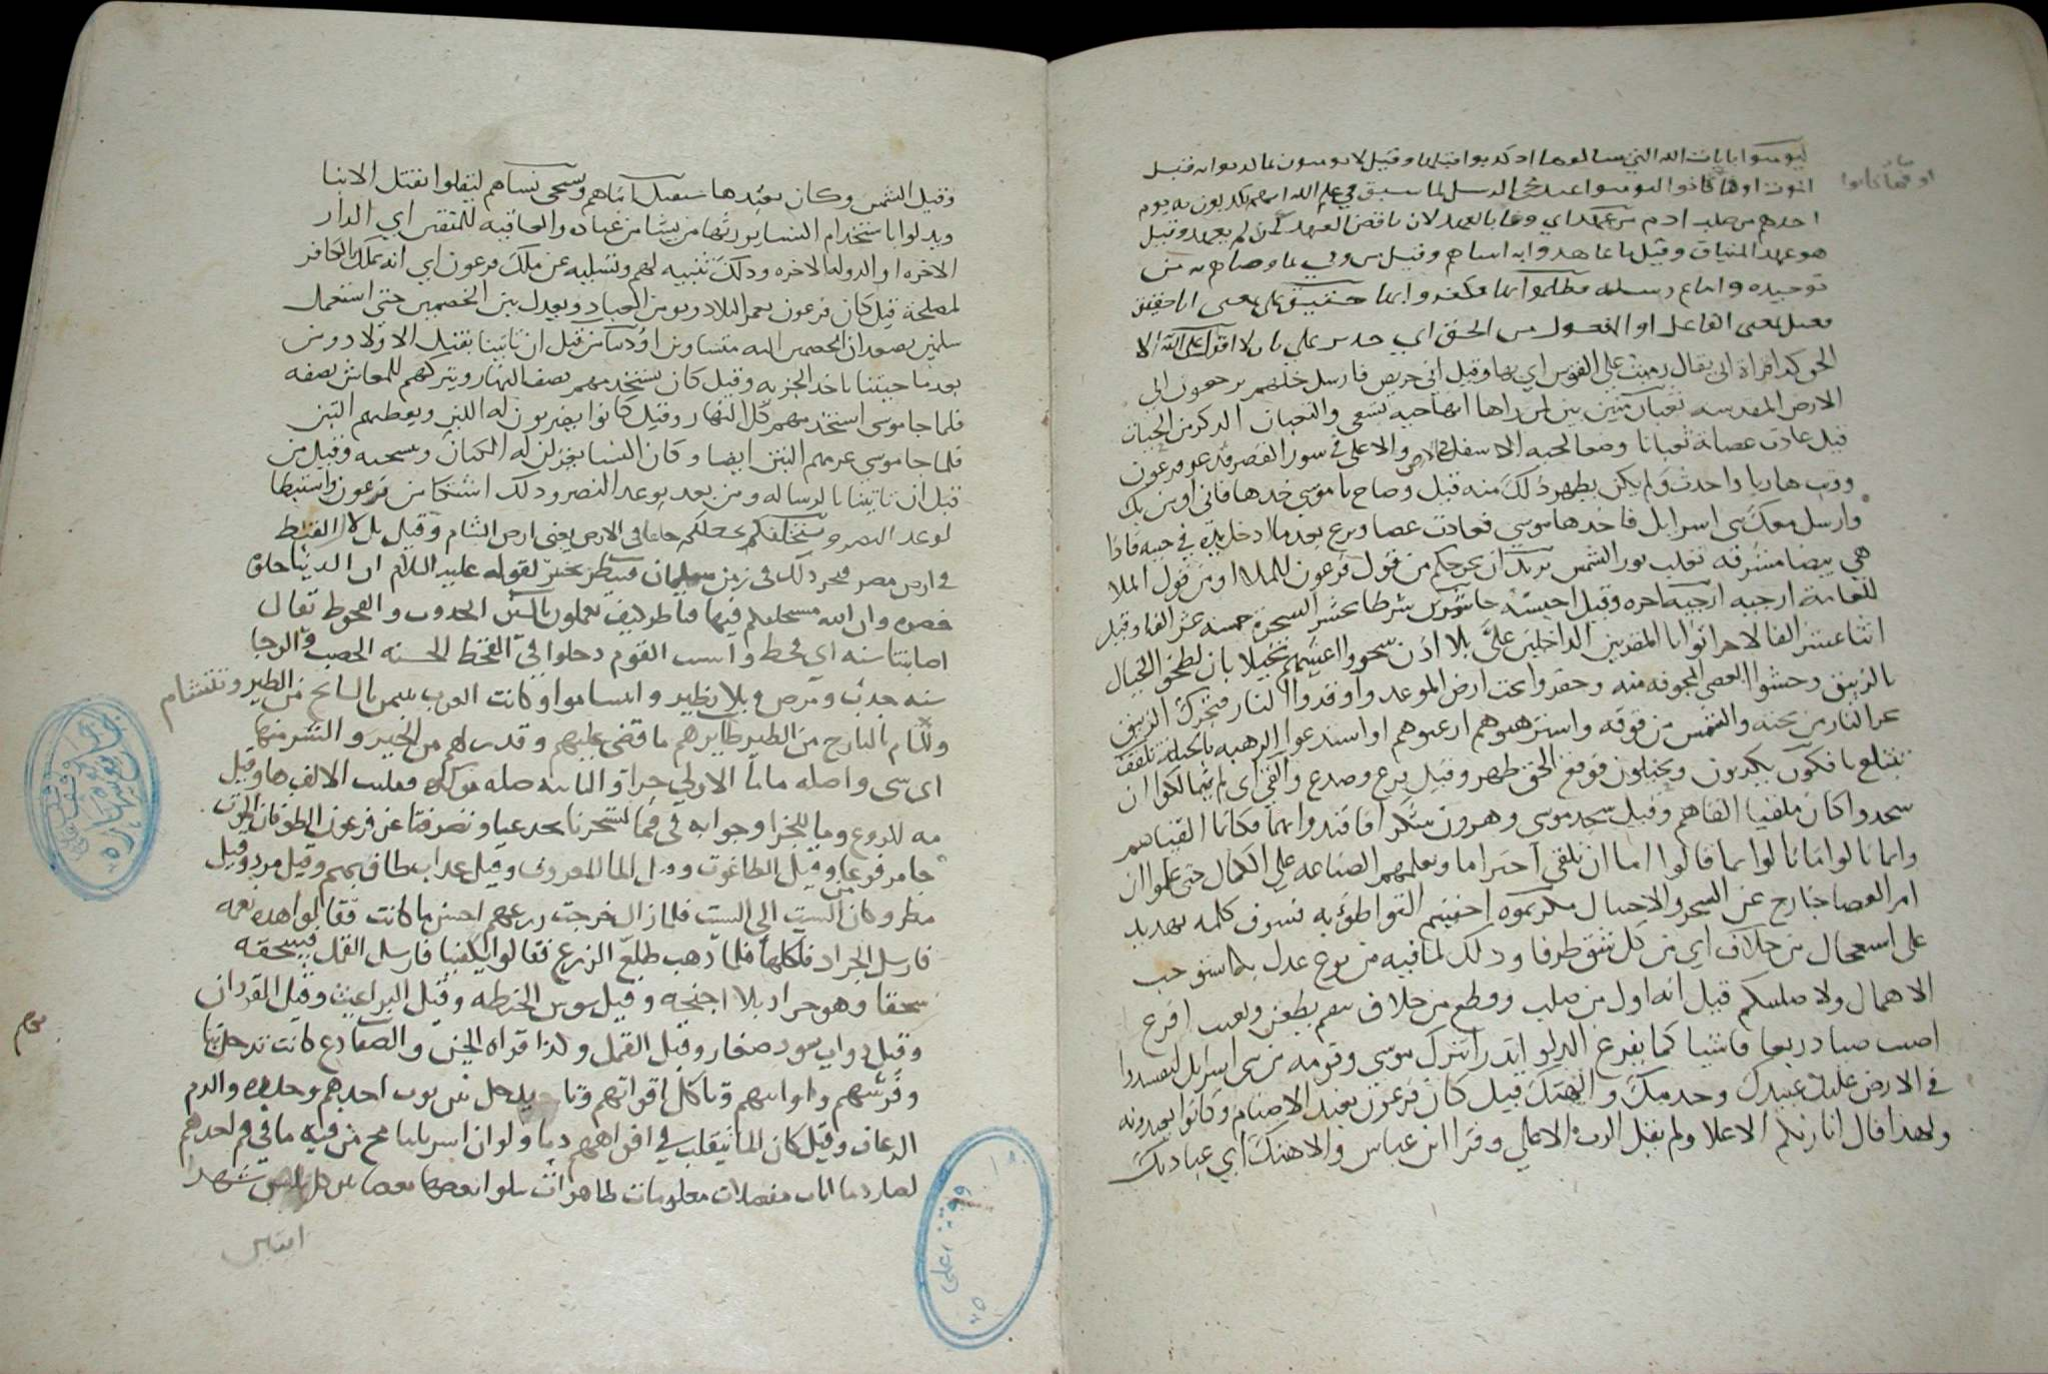 ليومنوا بايات الله التي سالوها اذ كذبوا قبلها وقيل لا يومنون بما كذبوا به قبل
الموت او ما كانوا ليومنوا عند مجي الرسل لما سبق في علم الله انهم يكذبون به يوم
اخذهم من صلب ادم من عهد اي وفا بالعهد لان ناقض العهد كمن لم يعهد وقيل
هو عهد الميثاق وقيل ما عاهدوا به انبياهم وقيل من وفي بما وصاهم به من
توحيده واتباع رسله فظلموا بها فكفروا بها حقيق علي بمعنى انا حقيق
فعيل بمعنى الفاعل او المفعول من الحق اي جدير علي بان لا اقول على الله الا
الحق كذا قراة ابي يقال رميت على القوس اي بها وقيل اني حريص فارسل خلهم يرجعون الي
الارض المقدسة ثعبان مبين بين لمن راها انها حية تسعى والثعبان الذكر من الحيات
قيل عادت عصاه ثعبانا وضعا لحيه الاسفل في الارض والاعلى في سور القصر فذعر فرعون
ووثب هاربا واحدث ولم يكن يظهر ذلك منه قبل وصاح يا موسى خذها فاني اومن بك
وارسل معك بني اسرايل فاخذها موسي فعادت عصا ونزع يده بعد ما ادخل يده في جيبه فاذا
هي بيضا مشرقة تغلب نور الشمس يريد ان يخرجكم من قول فرعون للملا او من قول الملا
للعامة ارجيه ارجيه اخره وقيل احبسه حاشرين شرطا بحشر السحرة خمسة عشر الفا وقيل
اثنا عشر الفا لاجرا ثوابا المقربين الداخلين علي بلا اذن سحروا اعينهم تخييلا بان لطخوا الحبال
بالزيبق وحشوا العصي المجوفة منه وحفروا تحت ارض الموعد واوقدوا النار فتحرك الزيبق
بحر النار من تحته والشمس من فوقه واسترهبوهم ارعبوهم او استدعوا الرهبة بالحيلة تلقف
تبتلع يافكون يكذبون ويخيلون فوقع الحق ظهر وقيل نزع وصدع والقي اي لم يتمالكوا ان
سجدوا كان ملقيا القاهم وقيل سجد موسى وهرون شكرا فاقتدوا بهما فكانما القياهم
وانما نالوا ما نالوا بما قالوا اما ان تلقي احتراما وبعلمهم الصناعة على الكمال حتى علموا ان
امر العصا خارج عن السحر والاحتيال مكرتموه اخفيتم التواطو به فسوف كلمة تهديد
على استعجال من خلاف اي من كل شق طرفا وذلك لما فيه من نوع عدل بما استوجب
الاهمال ولاصلبنكم قيل انه اول من صلب وقطع من خلاف افرغ
اصبب صبا ذريعا فاشيا كما يفرغ الدلو اتذر اتترك موسى وقومه من بني اسرايل ليفسدوا
في الارض عليك عبيدك وخدمك والهتك قيل كان فرعون يعبد الاصنام وكانوا يعبدونه
ولهذا قال انا ربكم الاعلا ولم يقل الرب الاعلي وقرا ابن عباس والاهتك اي عبادتك
وقيل الشمس وكان يعبدها سنقتل ابناهم ونستحي نساهم ليقلوا بقتل الابنا
ويذلوا باستخدام النسا يورثها من يشا من عباده والعاقبة للمتقين اي الدار
الاخرة او الدولة الاخرة وذلك تنبيه لهم وتسلية عن ملك فرعون اي انه يملك الكافر
لمصلحة قيل كان فرعون يعمر البلاد ويومن العباد ويعدل بين الخصمين حتى استعمل
سلمين يصعدان الخصمين اليه متساويين اوذينا من قبل ان تاتينا بقتل الاولاد ومن
بعد ما جيتنا باخذ الجزية وقيل كان يستخدمهم نصف النهار ويتركهم للمعاش نصفه
فلما جا موسى استخدمهم كل النهار وقيل كانوا يضربون له اللبن ويعطيهم التبن
فلما جا موسى غرمهم التبن ايضا وكان النسا يغزلن له الكتان وينسجنه وقيل من
قبل ان تاتينا بالرسالة ومن بعد بوعد النصر وذلك اشتكا من فرعون واستبطا
لوعد النصر ويستخلفكم يجعلكم خلفا في الارض يعني ارض الشام وقيل بل لال القبط
في ارض مصر فنجز ذلك في زمن سليمان فينظر يختبر لقوله عليه السلام ان الدنيا حلوة
خضرة وان الله مستخلفكم فيها فناظر كيف تعملون بالسنين الجدوب والقحوط تقال
اصابتنا سنة اي قحط واسنت القوم دخلوا في القحط الحسنة الخصب والرخا
سيئة جدب ومرض وبلا يطيروا يتشاموا وكانت العرب تتيمن بالسانح من الطير وتتشام
بالبارح من الطير طايرهم ما قضي عليهم وقدر لهم من الخير والشر مهما
اي شي واصله ماما الاولى جزا والثانية صلة موكدة فقلبت الالف ها وقيل
مه للردع وما للجزا وجوابه في فما لتسحرنا تخدعنا وتصرفنا عن فرعون الطوفان الموت
جا مرفوعا وقيل الطاعون وقيل الما المعروف وقيل عذاب طاف بهم وقيل
مطر وكان من السبت الي السبت فلما زال خرجت زرعهم احسن ما كانت فقالوا هذه نعمة
فارسل الجراد فاكلها فلما ذهب طلع الزرع فقالوا يكفينا فارسل القمل فيسحقه
سحقا وهو جراد بلا اجنحة وقيل سوس الحنطة وقيل البراغيث وقيل القردان
وقيل دواب سود صغار وقيل القمل ولذا قراه الحسن والضفادع كانت تدخل
وفرشهم واوانيهم وتاكل اقواتهم احدهم وحلقه والدم
الرعاف وقيل كان الما ينقلب في افواههم دما ولو ان اسرايليا مج من فيه ما في فم احدهم
لصار دما ايات مفصلات معلومات ظاهرات بعضها بعضا شهرا